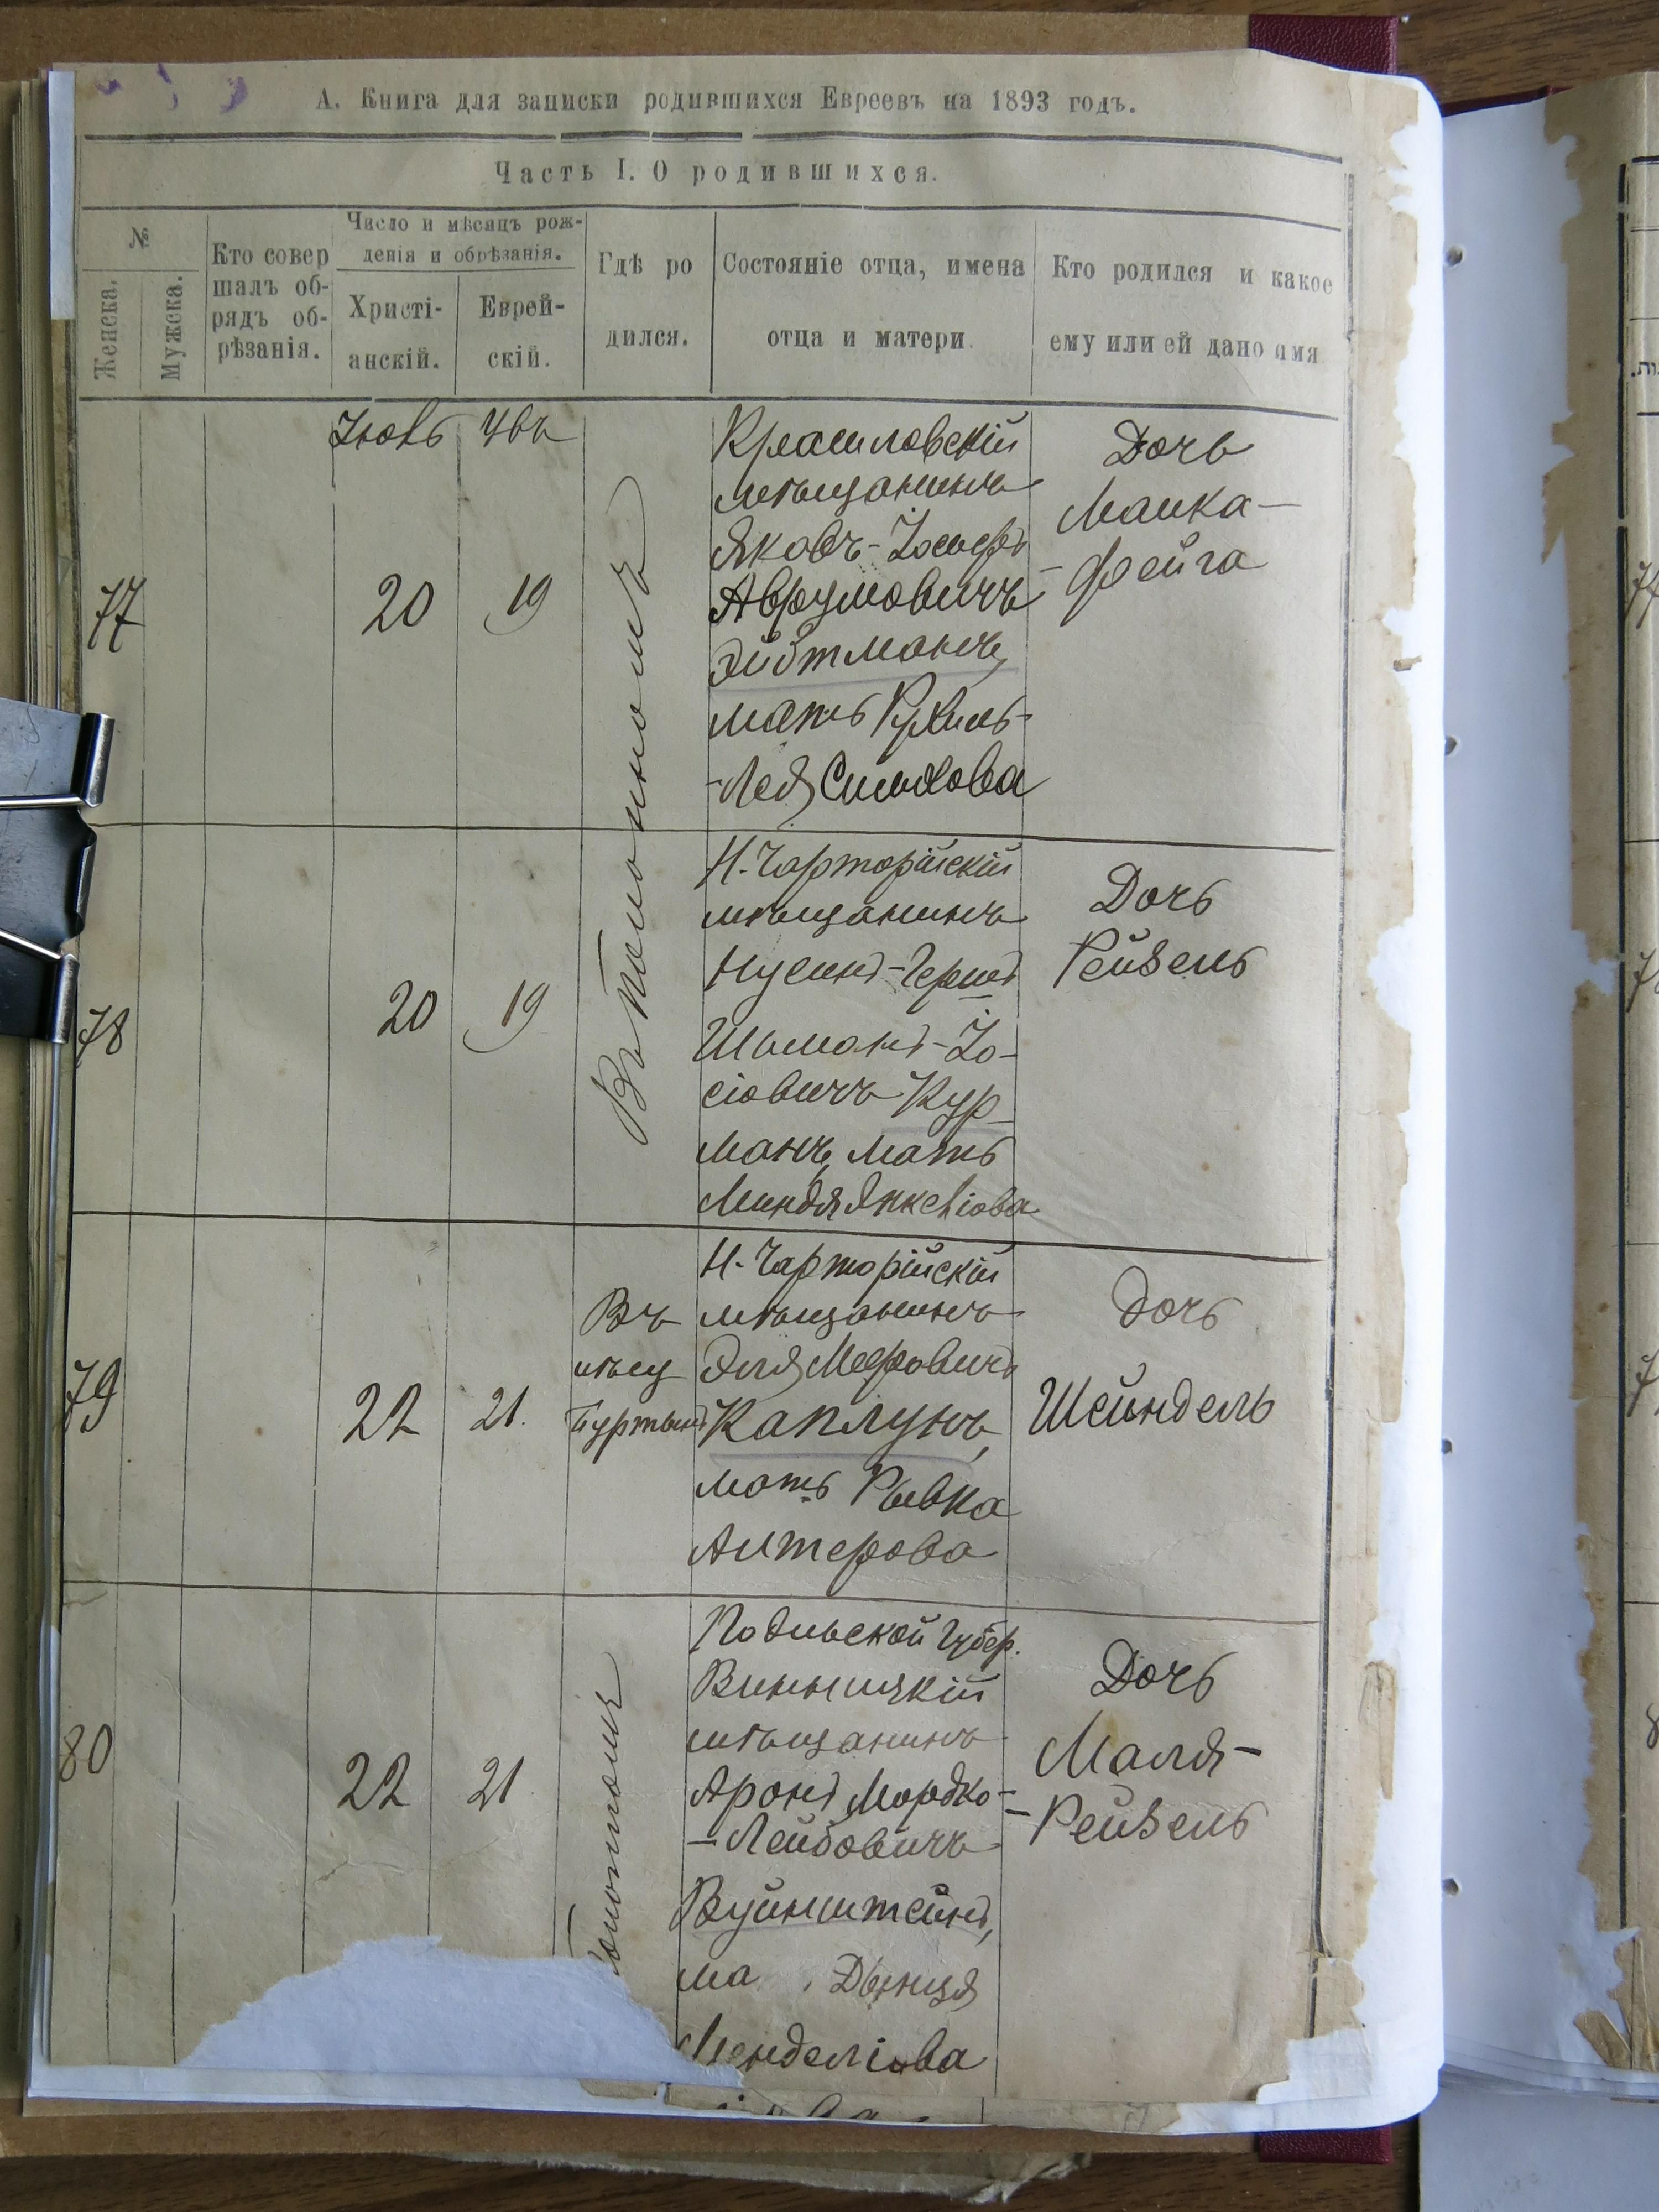 А. Книга для записки родившихся Евреевъ на 1893 годъ.
Часть I. О родившихся.
№
Женска.
Мужска.
Кто совер
шалъ об-
рядъ об-
рѣзанія.
Число и мѣсяцъ рож-
денія и обрѣзанія.
Христі-
анскій.
Еврей-
скій.
Гдѣ ро
дился.
Состояніе отца, имена
отца и матери.
Кто родился и какое
ему или ей дано имя
77
20
19
Въ Полонномъ
Красиловскій
мѣщанинъ
Яковъ-Іосифъ
Аврумовичъ
мать Рухль-
-Лея
Дочь
Малка-
-Фейга
78
20
19
Н.-Чарторійскій
мѣщанинъ
Нусинъ-Герш
Шимонъ-Іо-
сіовичъ Кур-
манъ, мать
Миндя Янкеліова
Дочь
Рейзель
79
22
21.
Въ
Н.-Чарторійскій
мѣщанинъ
Эля Мееровичъ
Каплунъ,
мать Рывка
Алтерова
Дочь
Шейндель
80
22
21
Подольской Губер.
Винницкій
мѣщанинъ
Аронъ Мордко-
-Лейбовичъ
Вуйнштейнъ,
ма
Менделіова
Дочь
Маля-
-Рейзель